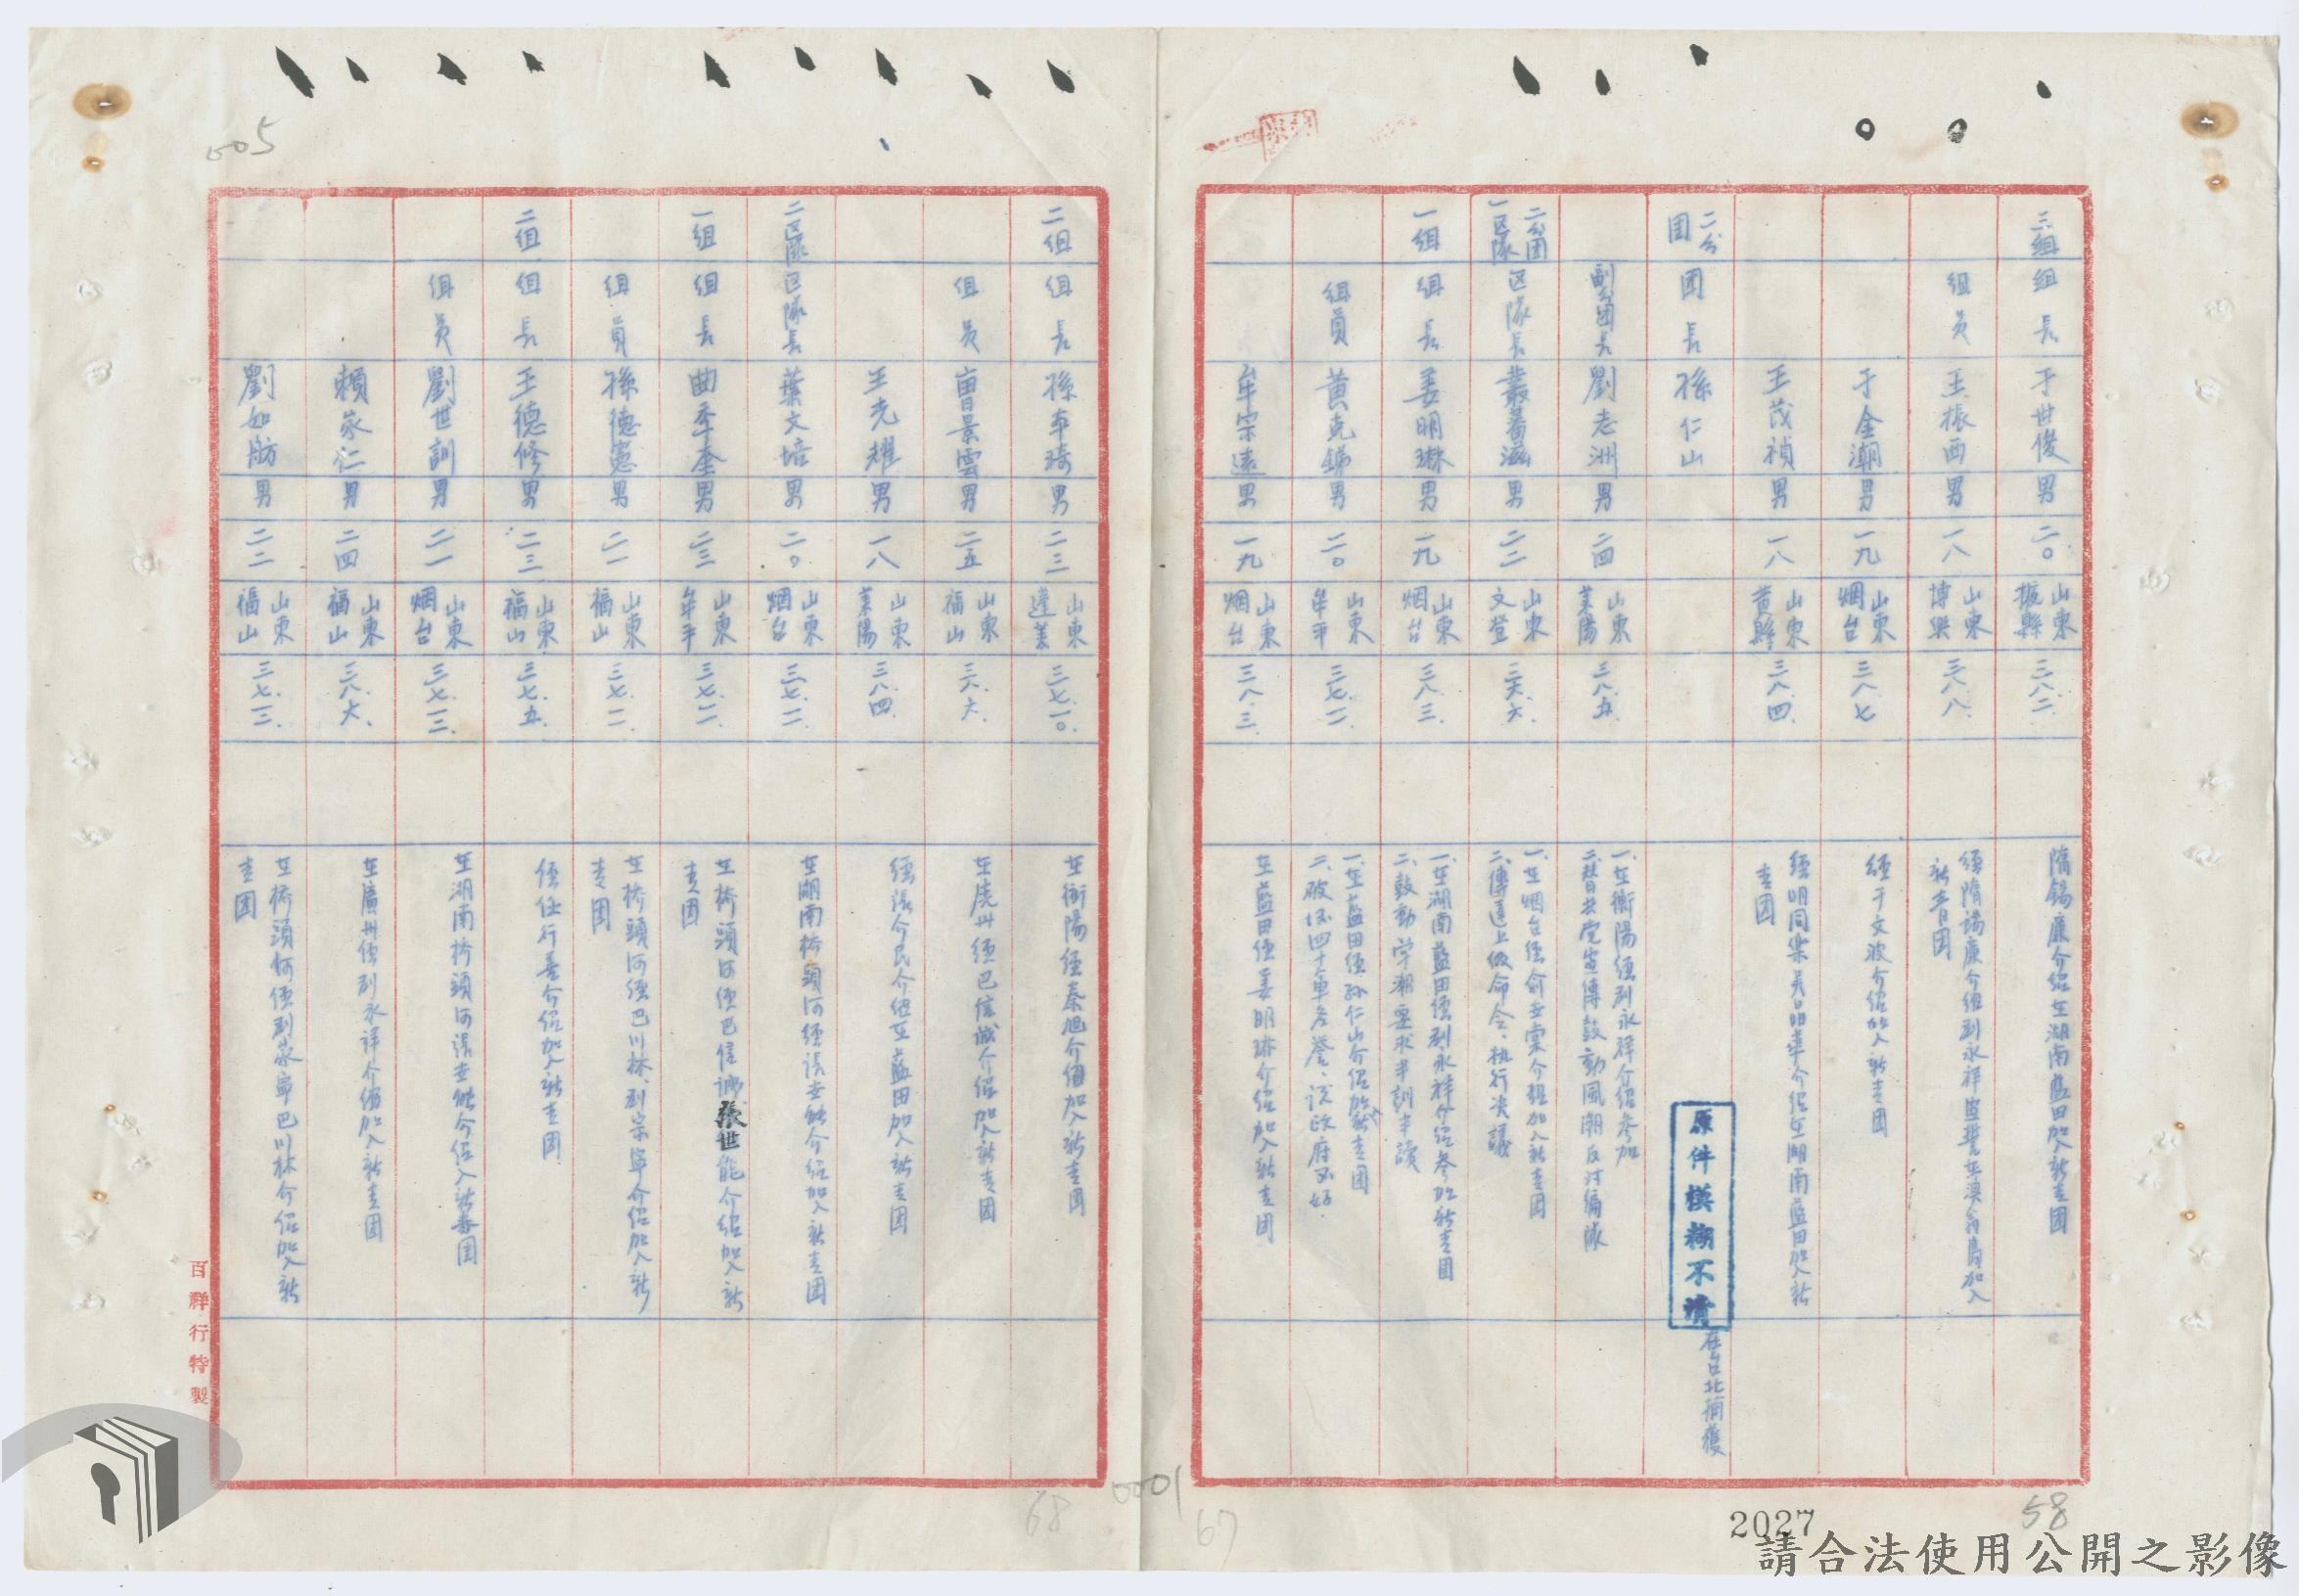 三組 組長 于世俊 男 二〇 山東掖縣 三八.二. 隋錫廉介紹在湖南藍田加入新青团
組員 王振西 男 一八 山東博興 三八.八. 經隋錫廉介紹到永祥
新青团
于金潮 男 一九 山東烟台 三八.七 經于文波介紹加入新青团
王茂禎 男 一八 山東黃縣 三八.四. 經明同樂 介紹在湖南藍田加入新
青团
二分团 团長 孫仁山
原件模糊不清
在台北捕獲
副分团長 劉志洲 男 二四 山東萊陽 三八.五. 一、在衡陽經刘永祥介紹參加
二、替共党宣傳鼓動風潮反对編隊
二分团一区隊 区隊長 叢蕃滋 男 二二 山東文登 三六.六. 一、在烟台經俞 介紹加入新青团
二、傳達上級命令、执行决議
一組 組長 姜明琳 男 一九 山東烟台 三八.三. 一、在湖南藍田經刘永祥介紹參加新青团
二、鼓動学潮要求半訓半讀
組員 黃克錦 男 二〇 山東牟平 三七.一一 一、在藍田經孙仁山介紹加新青团
二、破坏四十軍名譽、説政府不好.
牟宗遠 男 一九 山東烟台 三八.三. 在藍田經姜明琳介紹加入新青团
二組 組長 孫本琦 男 二三 山東蓬萊 三七.一〇. 在衡陽經秦旭介紹加入新青团
組員 曹景雲 男 二五 山東福山 三六.六. 在 州經巴信誠介紹加入新青团
王光耀 男 一八 山東萊陽 三八.四. 經張介民介紹在藍田加入新青团
二区隊 区隊長 葉文培 男 二〇. 山東烟台 三七.一一. 在湖南桥頭河經張世能介紹加入新青团
一組 組長 曲丕奎 男 二三 山東牟平 三七.一一. 在桥頭河經巴信誠張世能介紹加入新
青团
組員 孫德憲 男 二一 山東福山 三七.一一. 在桥頭河經巴川林、刘宗寧介紹加入新
青团
二組 組長 王德修 男 二三 山東福山 三七.五. 經任行善介紹加入新青团
組員 劉世訓 男 二一 山東烟台 三七.一二. 在湖南桥頭河張世能介紹入新青团
賴家仁 男 二四 山東福山 三八.六、 在廣州經刘永祥介紹加入新青团
劉如舫 男 二二 山東福山 三七.一二. 在桥頭河經刘家寧巴川林介紹加入新
青团
百祥行特製
005
68
0001
67
2027
58
請合法使用公開之影像